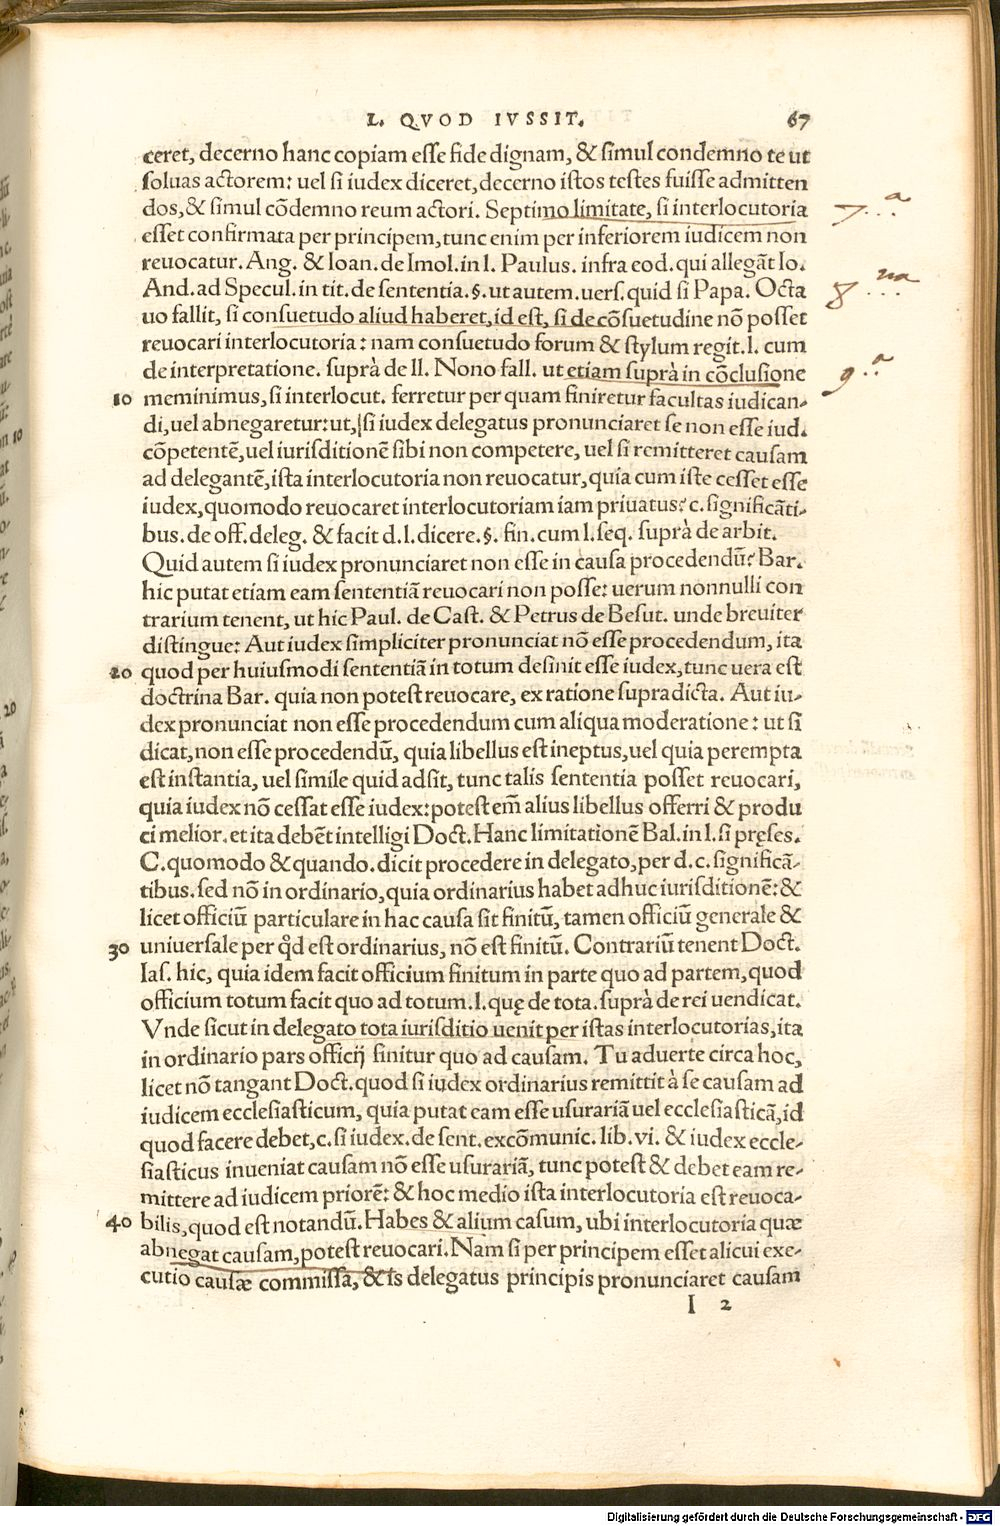 L. QVOD IVSSIT. 67
ceret, decerno hanc copiam esse fide dignam, & simul condemno te ut
soluas actorem: uel si iudex diceret, decerno istos testes fuisse admitten
dos, & simul cõdemno reum actori. Septimo limitate, si interlocutoria
7...a
esset confirmata per principem, tunc enim per inferiorem iudicem non
reuocatur. Ang. & Ioan. de Imol. in l. Paulus. infra eod. qui allegãt Io.
And. ad Specul. in tit. de sententia. §. ut autem. uers. quid si Papa. Octa
8...na
uo fallit, si consuetudo aliud haberet, id est, si de cõsuetudine nõ posset
reuocari interlocutoria: nam consuetudo forum & stylum regit. l. cum
de interpretatione. suprà de ll. Nono fall. ut etiam suprà in cõclusione
9..a
10 meminimus, si interlocut. ferretur per quam finiretur facultas iudican-
di, uel abnegaretur: ut, si iudex delegatus pronunciaret se non esse iud.
cõpetentẽ, uel iurisditionẽ sibi non competere, uel si remitteret causam
ad delegantẽ, ista interlocutoria non reuocatur, quia cum iste cesset esse
iudex, quomodo reuocaret interlocutoriam iam priuatus? c. significãti-
bus. de off. deleg. & facit d. l. dicere. §. fin. cum l. seq. suprà de arbit.
Quid autem si iudex pronunciaret non esse in causa procedendũ? Bar.
hic putat etiam eam sententiã reuocari non posse: uerum nonnulli con
trarium tenent, ut hic Paul. de Cast. & Petrus de Besut. unde breuiter
distingue: Aut iudex simpliciter pronunciat nõ esse procedendum, ita
20 quod per huiusmodi sententiã in totum desinit esse iudex, tunc uera est
doctrina Bar. quia non potest reuocare, ex ratione supradicta. Aut iu-
dex pronunciat non esse procedendum cum aliqua moderatione: ut si
dicat, non esse procedendũ, quia libellus est ineptus, uel quia perempta
est instantia, uel simile quid adsit, tunc talis sententia posset reuocari,
quia iudex nõ cessat esse iudex: potest em̃ alius libellus offerri & produ
ci melior. et ita debẽt intelligi Doct. Hanc limitationẽ Bal. in l. si pręses.
C. quomodo & quando. dicit procedere in delegato, per d. c. significã-
tibus. sed nõ in ordinario, quia ordinarius habet adhuc iurisditionẽ: &
licet officiũ particulare in hac causa sit finitũ, tamen officiũ generale &
30 uniuersale per q̃d est ordinarius, nõ est finitũ. Contrariũ tenent Doct.
Ias. hic, quia idem facit officium finitum in parte quo ad partem, quod
officium totum facit quo ad totum. l. quę de tota. suprà de rei uendicat.
Vnde sicut in delegato tota iurisditio uenit per istas interlocutorias, ita
in ordinario pars officij finitur quo ad causam. Tu aduerte circa hoc,
licet nõ tangant Doct. quod si iudex ordinarius remittit à se causam ad
iudicem ecclesiasticum, quia putat eam esse usurariã uel ecclesiasticã, id
quod facere debet, c. si iudex. de sent. excõmunic. lib. vi. & iudex eccle-
siasticus inueniat causam nõ esse usurariã, tunc potest & debet eam re-
mittere ad iudicem priorẽ: & hoc medio ista interlocutoria est reuoca-
40 bilis, quod est notandũ. Habes & alium casum, ubi interlocutoria quæ
abnegat causam, potest reuocari. Nam si per principem esset alicui exe-
cutio causæ commissa, & is delegatus principis pronunciaret causam
I 2
Digitalisierung gefördert durch die Deutsche Forschungsgemeinschaft - DFG